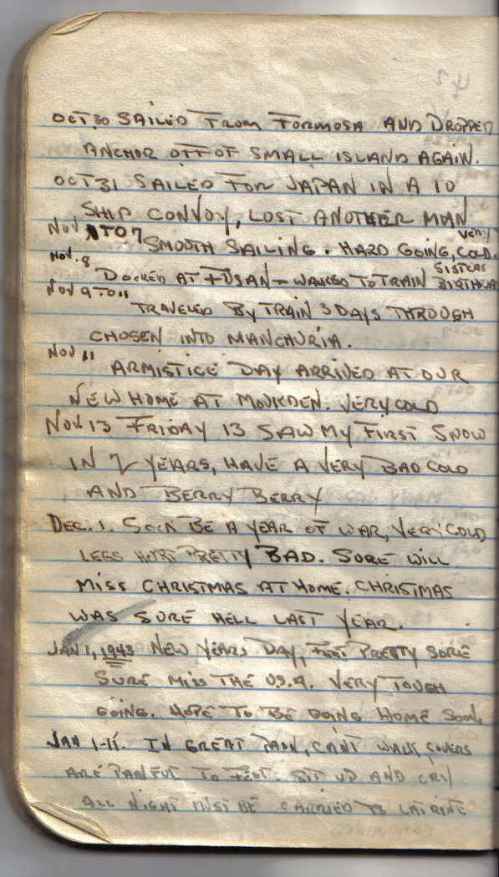 OCT 30 SAILED FROM FORMOSA AND DROPPED
ANCHOR OFF OF SMALL ISLAND AGAIN.
OCT 31 SAILED FOR JAPAN IN A 10
SHIP CONVOY, LOST ANOTHER MAN
NOV 1 TO 7 SMOOTH SAILING. HARD GOING, VERY COLD.
NOV. 8 DOCKED AT FUSAN - WALKED TO TRAIN SISTERS BIRTHDAY
NOV 9 TO 11 TRAVELED BY TRAIN 3 DAYS THROUGH
CHOSEN INTO MANCHURIA.
NOV 11 ARMISTICE DAY ARRIVED AT OUR
NEW HOME AT MOUKDEN. VERY COLD
NOV. 13 FRIDAY 13 SAW MY FIRST SNOW
IN 2 YEARS, HAVE A VERY BAD COLD
AND BERRY BERRY
DEC. 1. SOON BE A YEAR OF WAR, VERY COLD
LEGS HURT PRETTY BAD. SURE WILL
MISS CHRISTMAS AT HOME. CHRISTMAS
WAS SURE HELL LAST YEAR.
JAN 1, 1943 NEW YEARS DAY, FEET PRETTY SORE
SURE MISS THE U.S.A. VERY TOUGH
GOING. HOPE TO BE GOING HOME SOON.
JAN 1-15. IN GREAT PAIN, CAN'T WALK, COVERS
ARE PAINFUL TO FEET. SIT UP AND CRY
ALL NIGHT MUST BE CARRIED TO LATRINE